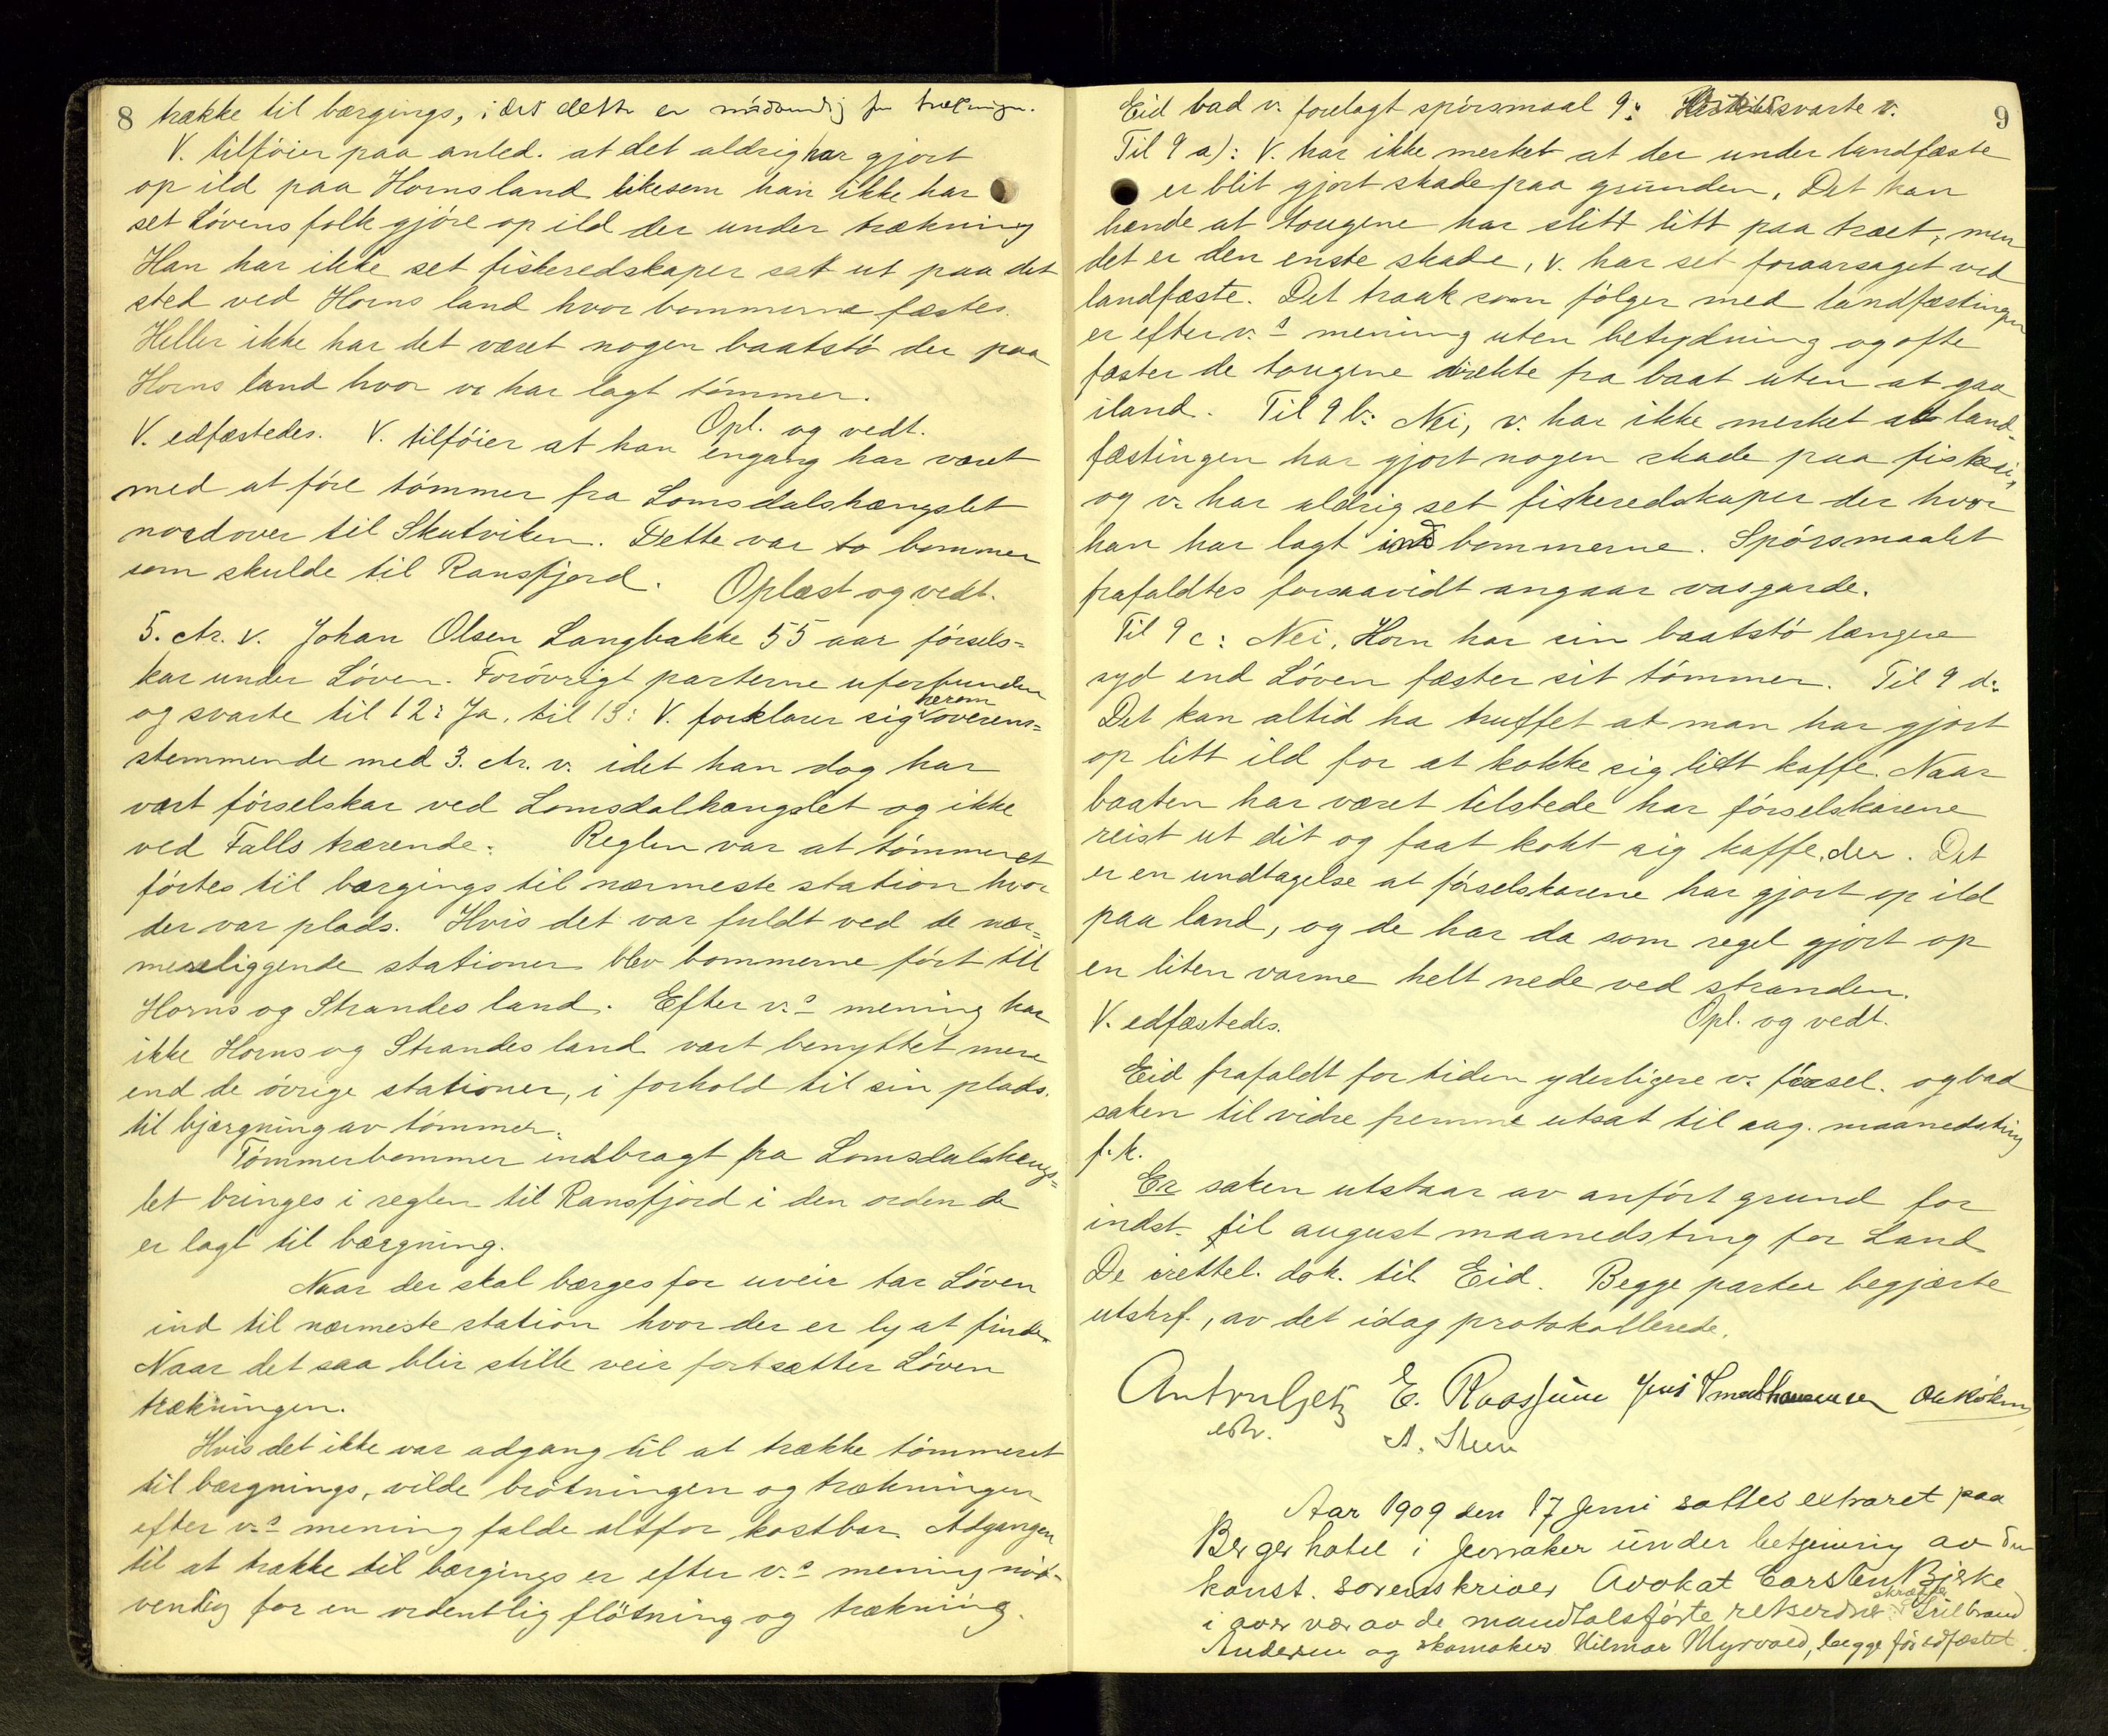 8
trække til bærgings, idet dette er nödvendig for trækningen.
V. tilföier paa anled. at det aldrig har gjort
op ild paa Horns land likesom han ikke har
set Lövens folk gjöre op ild der under trækning
Han har ikke set fiskeredskaper sat ut paa det
sted ved Horns land hvor bommerne fæstes.
Heller ikke har det været nogen baatstö der paa
Horns land hvor vi har lagt tömmer.
Opl. og vedt.
V. edfæstedes. V. tilföier at han engang har været
med at före tömmer fra Lomsdalshængslet
nordover til Skutviken. Dette var to bommer
som skulde til Ransfjord. Oplæst og vedt.
5. ctr. v. Johan Olsen Langbakke 55 aar försels-
kar under Löven. Forövrigt parterne uforbunden
og svarte til 12: Ja, til 13: V. forklarer sig herom overens-
stemmende med 3. ctr. v. idet han dog har
vært förselskar ved Lomsdalhængslet og ikke
ved Falls tærende. Reglen var at tömmeret
förtes til bærgings til nærmeste station hvor
der var plads. Hvis det var fuldt ved de nær-
mereliggende stationer blev bommerne fört til
Horns og Strandes land. Efter v.s mening har
ikke Horns og Strandes land vært benyttet mere
end de övrige stationer, i forhold til sin plads
til bjærgning av tömmer.
Tömmerbommer indbragt fra Lomsdalshængs-
let bringes i reglen til Ransfjord i den orden de
er lagt til bærgning.
Naar der skal bærges for uveir tar Löven
ind til nærmeste station hvor der er ly at finde.
Naar det saa blir stille veir fortsætter Löven
trækningen.
Hvis det ikke var adgang til at trække tömmeret
til bærgnings, vilde brötningen og trækningen
efter v.s mening falde altfor kostbar. Adgangen
til at trække til bærgings er efter v.s mening nöd-
vendig for en ordentlig flötning og trækning.
9
Eid bad v. forelagt spörsmaal 9: svarte v.
Til 9 a): V. har ikke merket at der under landfæste
er blit gjort skade paa grunden. Det kan
hænde at tougene har slitt litt paa træet, men
det er den enste skade, v. har set foraarsaget ved
landfæste. Det traak som fölger med landfæstingen
er efter v.s mening uten betydning og ofte
fæster de tougene direkte fra baat uten at gaa
iland. Til 9 b: Nei, v. har ikke merket at land-
fæstingen har gjort nogen skade paa fiskeri,
og v. har aldrig set fiskeredskaper der hvor
han har lagt ind bommerne. Spörsmaalet
frafaldtes forsaavidt angaar vasgarde.
Til 9 c: Nei, Horn har sin baatstö længere
syd end Löven fæster sit tömmer. Til 9 d:
Det kan altid ha truffet at man har gjort
op litt ild for at kokke sig litt kaffe. Naar
baaten har været tilstede har förselskarene
reist ut dit og faat kokt sig kaffe der. Det
er en undtagelse at förselskarene har gjort op ild
paa land, og de har da som regel gjort op
en liten varme helt nede ved stranden.
V. edfæstedes. Opl. og vedt.
Eid frafaldt for tiden yderligere v. försel. og bad
saken til vidre fremme utsat til aug. maanedsting
f. k.
Er saken utstaar av anfört grund for
indst. til august maanedsting for Land
De irettel. dok. til Eid. Begge parter begjærte
utskrf., av det idag protokollerede.
E.
A. Steen
Aar 1909 den 17 Juni sattes extraret paa
Berger hotel i Jevnaker under betjening av den
konst. sorenskriver Advokat Carsten Bjerke
i overvær av de mandtalsförte retsvidner skrædder
Andersen og skomaker Hilmar Myrvold, begge för edfæstet.